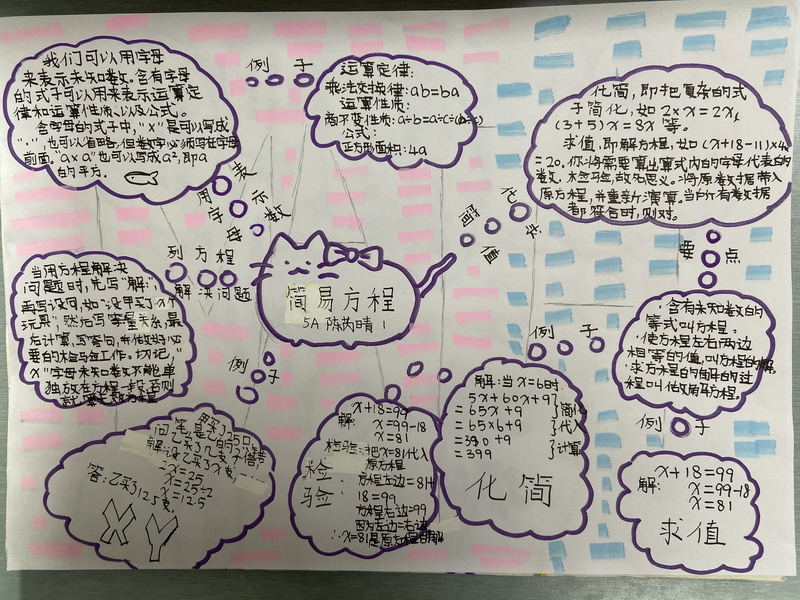 我们可以用字母
来表示未知数。含有字母
的式子可以用来表示运算定
律和运算性质以及公式。
含字母的式子中，"×"是可以写成
"·"，也可以省略，但数字必须写在字母
前面。"a×a"也可以写成a²，即a
的平方。
例子
运算定律：
乘法交换律：ab=ba
运算性质：
商不变性质：a÷b=
公式：
正方形面积：4a
化简，即把复杂的式
子简化，如2×x=2x，
(3+5)x=8x等。
求值，即解方程，如(x+18-11)×4
=20。你将需要算出算式内的字母代表的
数。检验，故名思义。将原数据带入
原方程，并重新演算。当所有数据
都符合时，则对。
用字母表示数
化简求值
要点
列方程
解决问题
当用方程解决
问题时，先写"解"，
再写设句，如"设甲买了x个
玩具"，然后写等量关系，最
后计算，写答句，并做好必
要的检验工作。切记，"
x"字母未知数不能单
独放在方程一段，否则
简易方程
5A 陈芮晴 1
含有未知数的
等式叫方程，
使方程左右两边
相等的值，叫方程的解，
求方程的解的过
程叫做解方程。
例子
例子
例子
答：乙买了12.5支。
2x=25
x=25÷2
x=12.5
X Y
x+18=99
解：x=99-18
x=81
检验：把x=81代入
原方程
检验：
方程左边=81+
18=99
方程右边=99
因为左边=右边
∴x=81是原方程的解
解：当x=6时
5x+60x+9
=65x+9 简化
=65×6+9 代入
=390+9
=399 计算
化简
x+18=99
解：x=99-18
x=81
求值